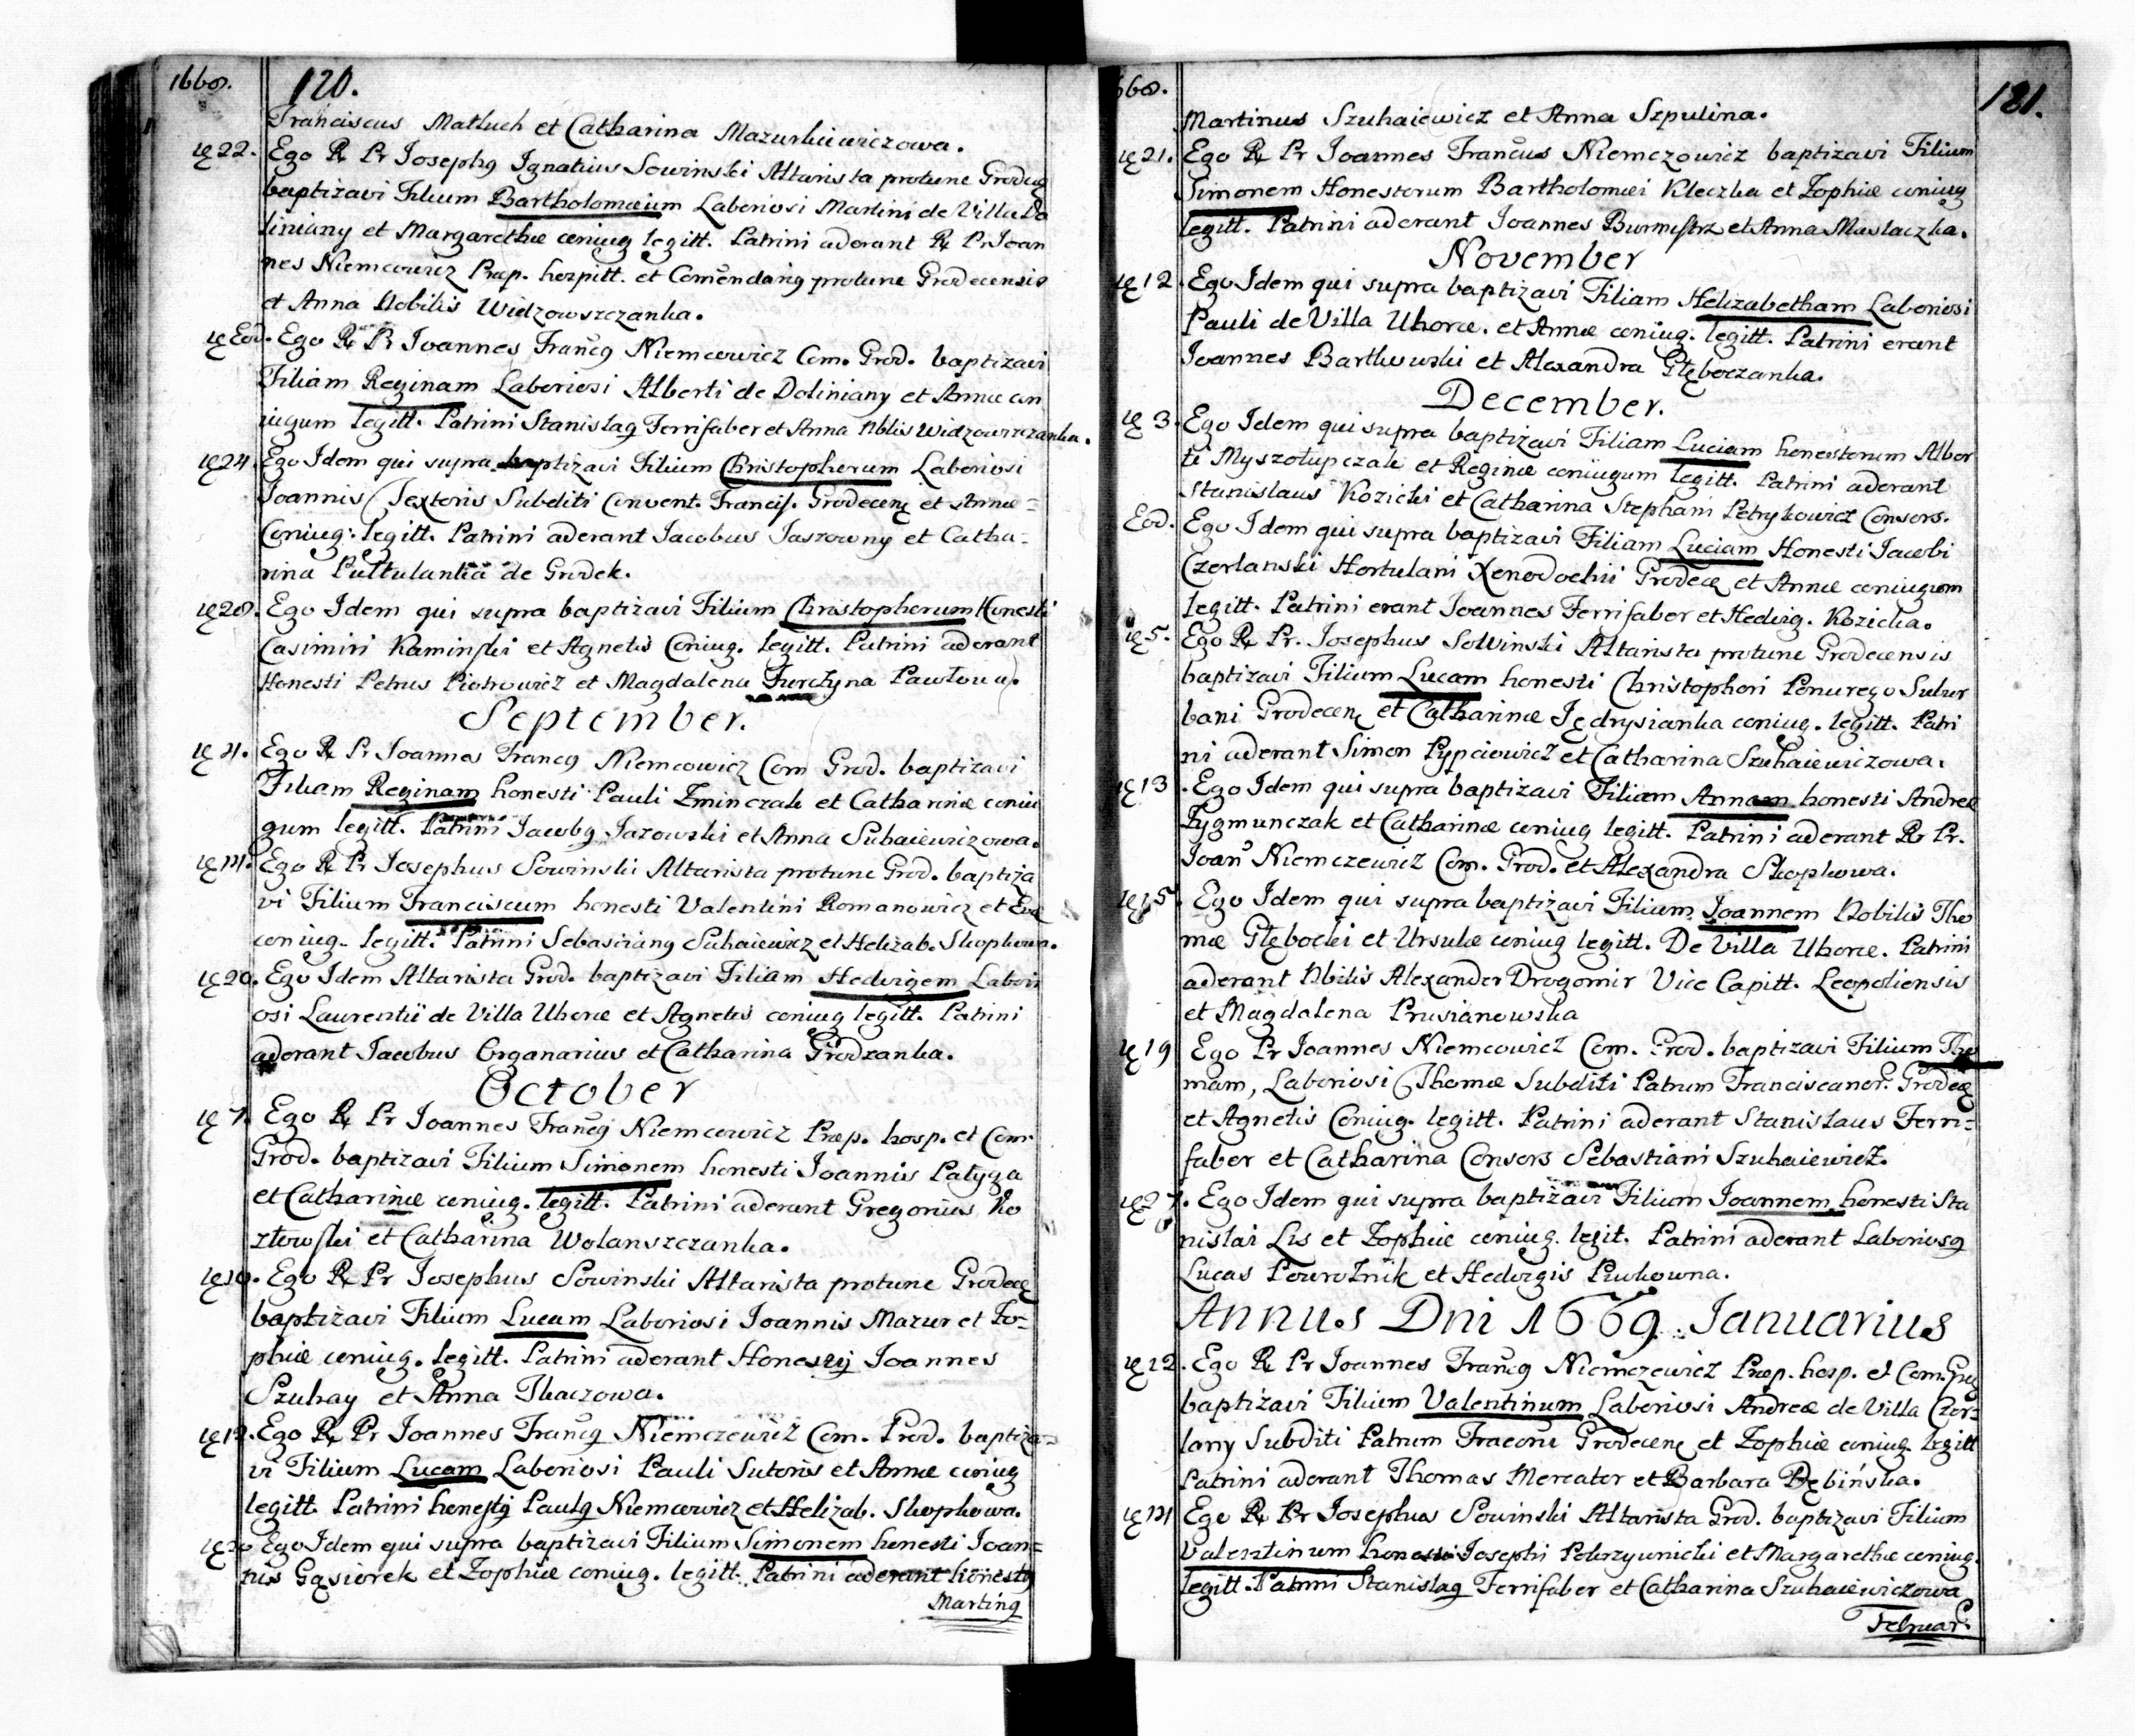 1668.
120.
Franciscus Matluch et Catharina Mazurkiewiczowa.
22. Ego R Pr Iosephq Ignatius Sowinski Altarista protunc Grodeq
baptizavi Filium Bartholomæum Laboriosi Martini de Villa Do
liniany et Margarethæ coniug legitt. Patrini aderant R Pr Joan
nes Niemcowicz Præp. hospitt. et Comendariq protunc Grodecensis
et Anna Nobilis Widzowszczanka.
Eod. Ego R Pr Ioannes Francq Niemcewicz Com. Grod. baptizavi
Filiam Reginam Laboriosi Alberti de Doliniany et Annæ con
iugum legitt. Patrini Stanislaq Ferrifaber et Anna Nblis Widzowszczanka.
24. Ego Idem qui supra baptizavi Filium Christopherum Laboriosi
Ioannis Textoris Subditi Convent. Francis. Grodecen et Annæ
Coniug: legitt. Patrini aderant Iacobus Jaszowny et Catha=
rina Pultulanka de Grodek.
28. Ego Idem qui supra baptizavi Filium Christopherum Honesti
Casimiri Kaminski et Agnetis Coniug. legitt. Patrini aderant
Honesti Petrus Piotrowicz et Magdalena Furczyna Pawłowa.
September.
4. Ego R Pr Ioannes Francq Niemcowicz Com Grod. baptizavi
Filiam Reginam honesti Pauli Zminczak et Catharinæ coniu
gum legitt. Patrini Iacobq Jazowski et Anna Suhaiewiczowa.
14. Ego R Pr Iosephus Sowinski Altarista protunc Grod. baptiza
vi Filium Franciscum honesti Valentini Romanowicz et Evæ
coniug. legitt. Patrini Sebastianq Suhaiewicz et Helizab. Skopkowa.
20. Ego Idem Altarista Grod. baptizavi Filiam Hedvigem Labori
osi Laurentii de Villa Uhorce et Agnetis coniug legitt. Patrini
aderant Iacobus Organarius et Catharina Grodzanka.
October
7. Ego R Pr Ioannes Francq Niemcowicz Præp. hosp. et Com.
Grod. baptizavi Filium Simonem honesti Ioannis Patyga
et Catharinæ coniug. legitt. Patrini aderant Gregorius Ko
złowski et Catharina Wolanszczanka.
10. Ego R Pr Iosephus Sowinski Altarista protunc Grodece
baptizavi Filium Lucam Laboriosi Ioannis Mazur et Zo=
phiæ coniug. legitt. Patrini aderant Honestij Ioannes
Szuhay et Anna Tkaczowa.
12. Ego R Pr Ioannes Francq Niemczewicz Com. Grod. baptiza=
vi Filium Lucam Laboriosi Pauli Sutoris et Annæ coniug
legitt. Patrini honestq Paulq Niemcowicz et Helizab. Skopkowa.
Ego Idem qui supra baptizavi Filium Simonem honesti Ioan=
nis Gąsiorek et Zophiæ coniug. legitt. Patrini aderant honestq
Martinq
668.
121.
Martinus Szuhaiewicz et Anna Szpulina.
21. Ego R Pr Ioannes Francus Niemczowicz baptizavi Filium
Simonem Honestorum Bartholomæi Kleczka et Zophiæ coniug
legitt. Patrini aderant Ioannes Burmistrz et Anna Maslaczka.
November
12. Ego Idem qui supra baptizavi Filiam Helizabetham Laboriosi
Pauli de Villa Uhorce. et Annæ coniug: legitt. Patrini erant
Ioannes Bartkowski et Alexandra Głęboczanka.
December.
3. Ego Idem qui supra baptizavi Filiam Luciam honestorum Alber
ti Myszołupczak et Reginæ coniugum legitt. Patrini aderant
Stanislaus Kozicki et Catharina Stephani Petrykowicz Consors.
Eod. Ego Idem qui supra baptizavi Filiam Luciam Honesti Iacobi
Czerlanski Hortulani Xenodochii Grodece et Annæ coniugum
legitt. Patrini erant Ioannes Ferrifaber et Hedvig. Kozicka.
5. Ego R Pr. Iosephus Sowinski Altarista protunc Grodecensis
baptizavi Filium Lucam honesti Christophori Ponurego Subur
bani Grodecen et Catharinæ Jędrysianka coniug. legitt. Patri
ni aderant Simon Pypciowicz et Catharina Szuhaiewiczowa.
13. Ego Idem qui supra baptizavi Filiam Annam honesti Andreæ
Zygmunczak et Catharinæ coniug legitt. Patrini aderant R Pr.
Ioan Niemczewicz Com. Grod. et Alexandra Skopkowa.
15. Ego Idem qui supra baptizavi Filium Ioannem Nobilis Tho
mæ Głębocki et Ursulæ coniug legitt. De Villa Uhorce. Patrini
aderant Nbilis Alexander Drogomir Vice Capitt. Leopoliensis
et Magdalena Prusianowska
19 Ego Pr Ioannes Niemcowicz Com. Grod. baptizavi Filium Tho
mam, Laboriosi Thomæ Subditi Patrum Franciscanor. Grodece
et Agnetis Coniug. legitt. Patrini aderant Stanislaus Ferri=
faber et Catharina Consors Sebastiani Szuhaiewicz.
27. Ego Idem qui supra baptizavi Filium Ioannem honesti Sta
nislai Lis et Zophiæ coniug. legit. Patrini aderant Laboriosq
Lucas Powroznik et Hedvigis Pukowna.
Annus Dni 1669. Ianuarius
12. Ego R Pr Ioannes Francq Niemczewicz Præp. hosp. et Com. Gro
baptizavi Filium Valentinum Laboriosi Andreæ de Villa Czer=
lany Subditi Patrum Grodecen et Zophiæ coniug. legitt
Patrini aderant Thomas Mercator et Barbara Dębińska.
14 Ego R Pr Iosephus Sowinski Altarista Grod. baptizavi Filium
Valentinum honesti Iosephi Pokrzywnicki et Margarethæ coniug.
legitt. Patrini Stanislaq Ferrifaber et Catharina Szuhaiewiczowa
Februar.